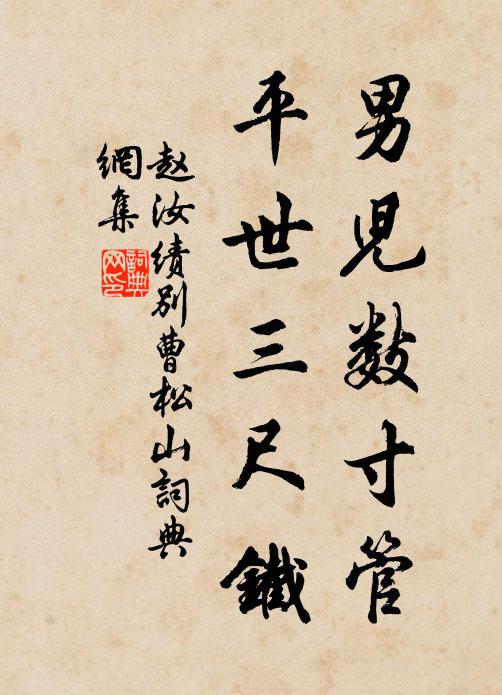 男児数寸管
平世三尺鐵
赵汝績別曹松山詞典
網集
詞典
网印